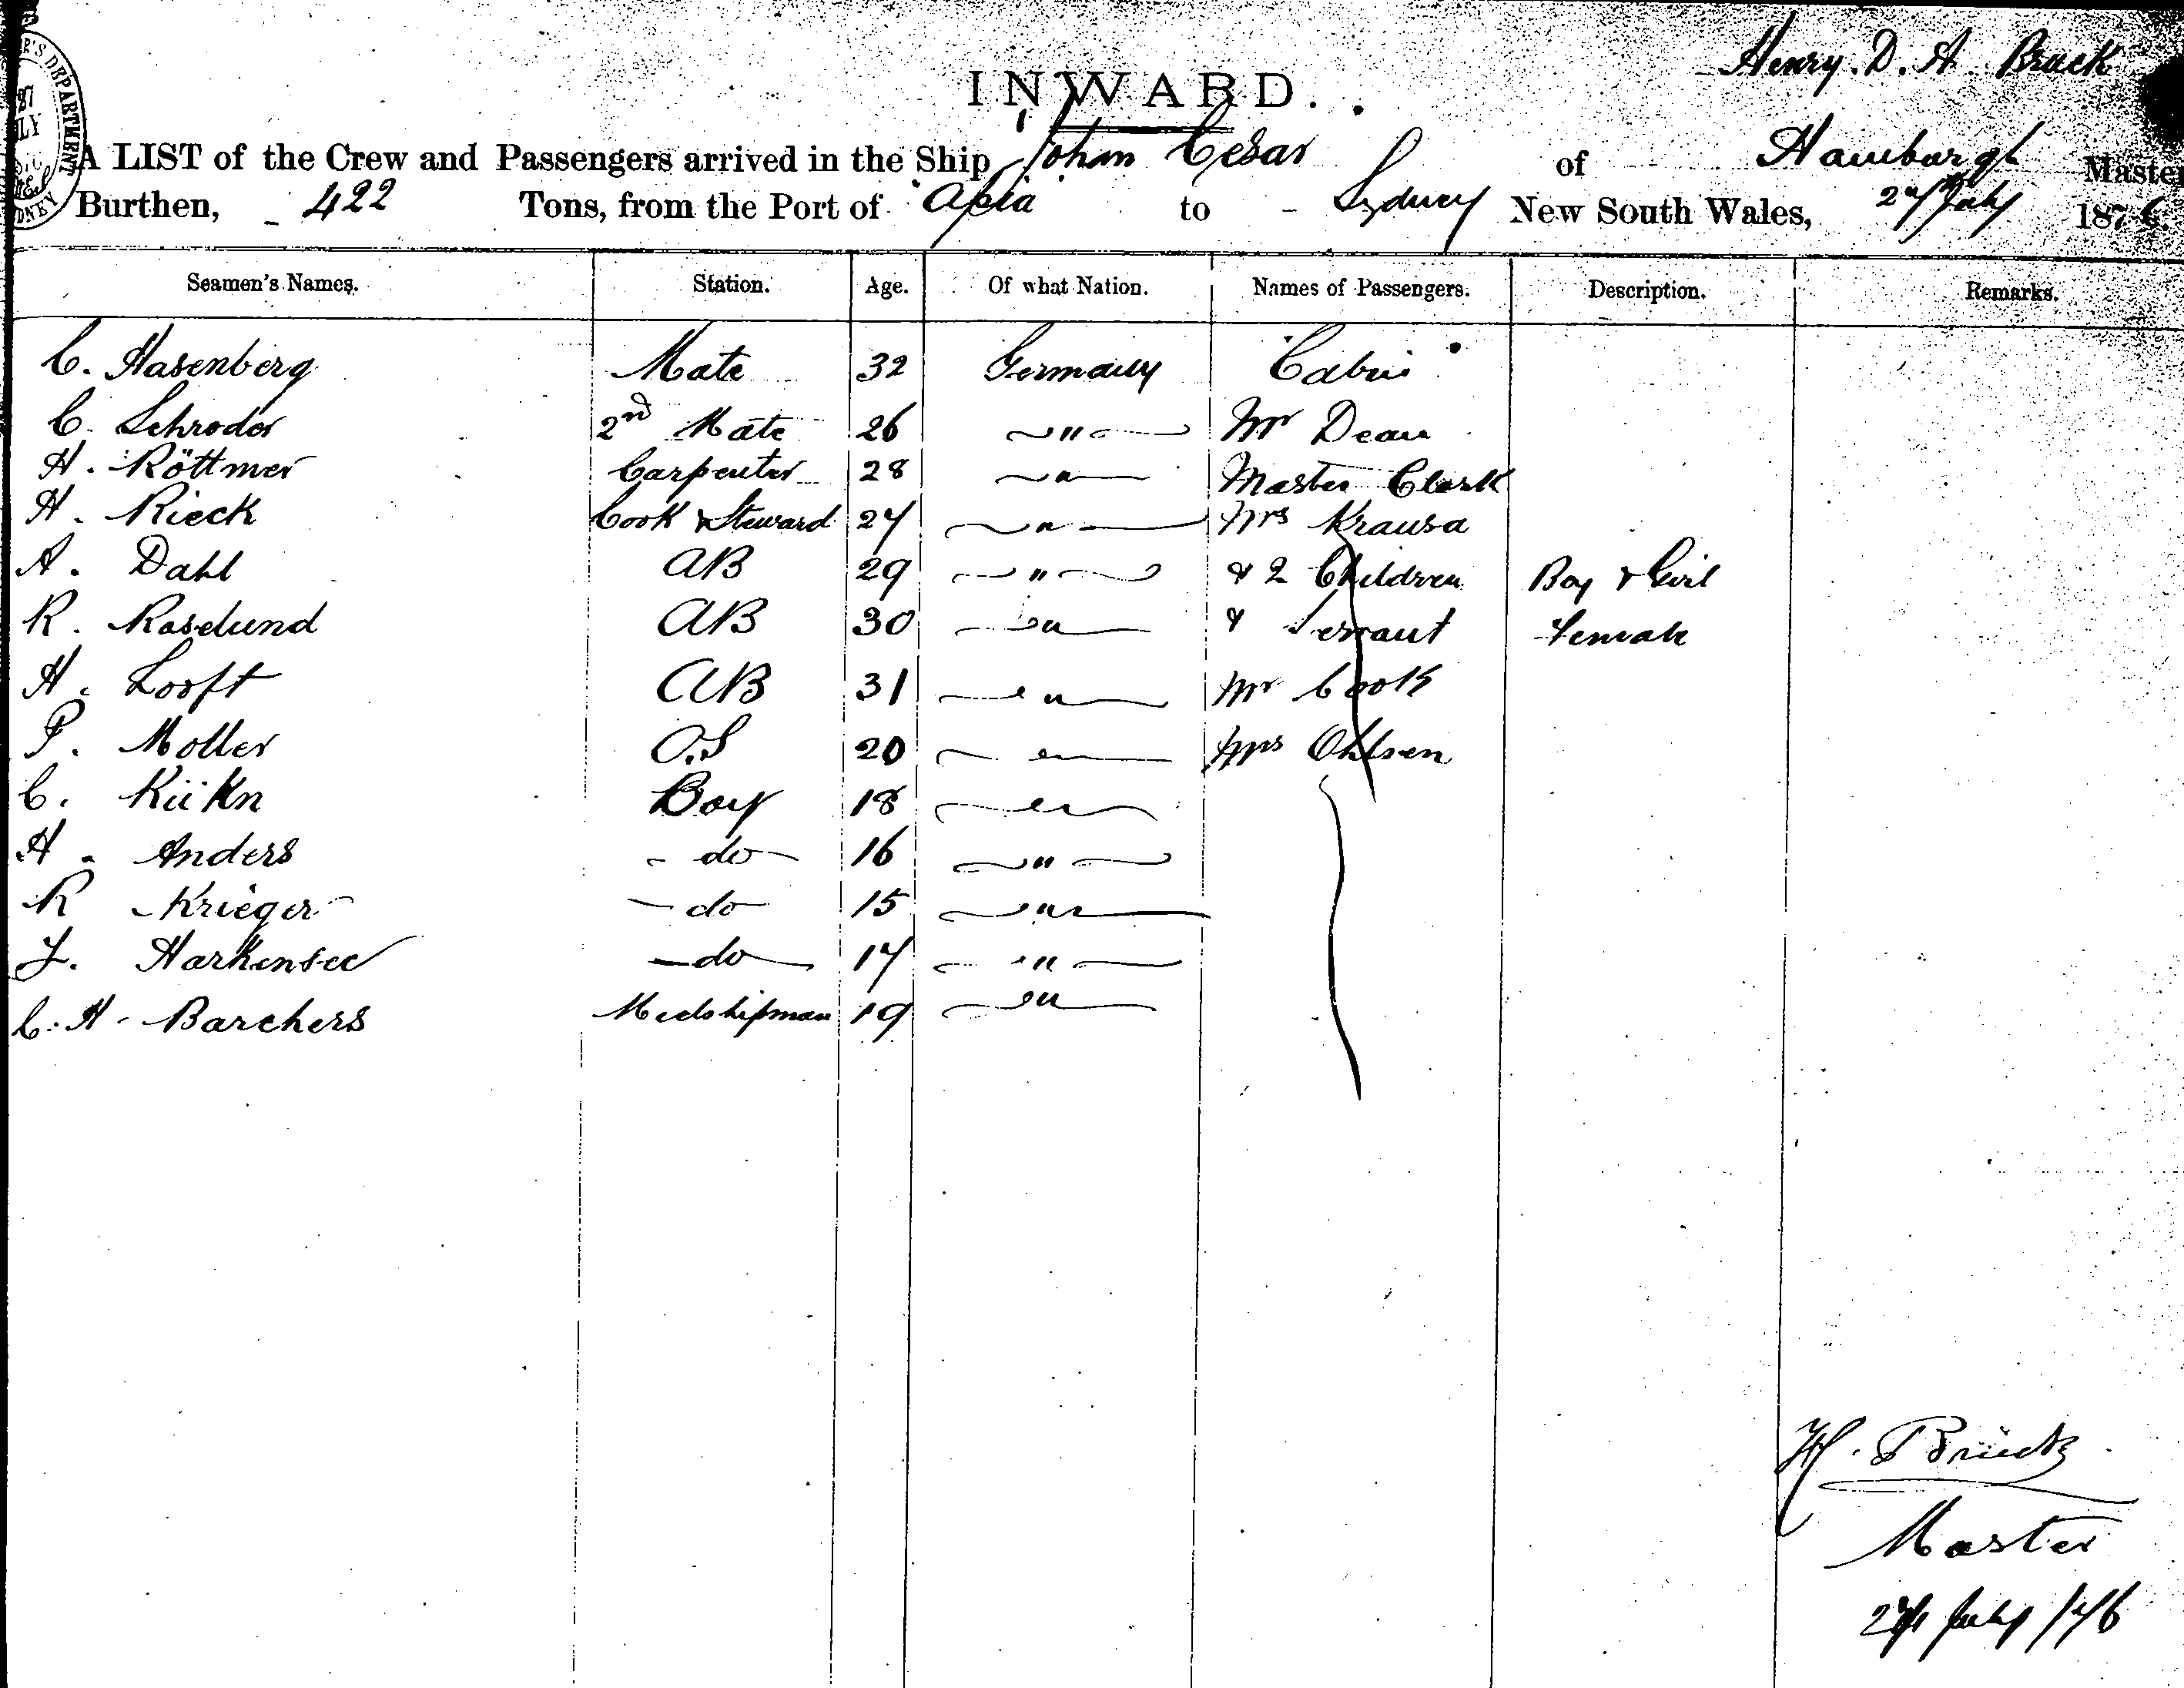 Henry. D. A. Bruck
INWARD.
A LIST of the Crew and Passengers arrived in the Ship Johan Cesar of Hamburgh Master
Burthen, 422 Tons, from the Port of Apia to Sydney New South Wales, 27 July 1876.
Seamen's Names. Station. Age. Of what Nation. Names of Passengers. Description. Remarks.
C. Hasenberg Mate 32 Germany Cabin
C. Schroder 2nd Mate 26 " Mr Dean
H. Röttmer Carpenter 28 " Master Clark
H. Rieck Cook & Steward 27 " Mrs Krausa
A. Dahl AB 29 " & 2 Children Boy & Girl
R. Roselund AB 30 " & Servant Female
H. Looft AB 31 " Mr Cook
P. Moller O.S 20 " Mrs Ohlsen
C. Kükn Boy 18 "
H. Anders do 16 "
R Krieger do 15 "
L. Harkensee do 17 "
C. H. Barchers Midshipman 19 "
H. Brück
Master
27 July /76
DEPARTMENT
27
SYDNEY